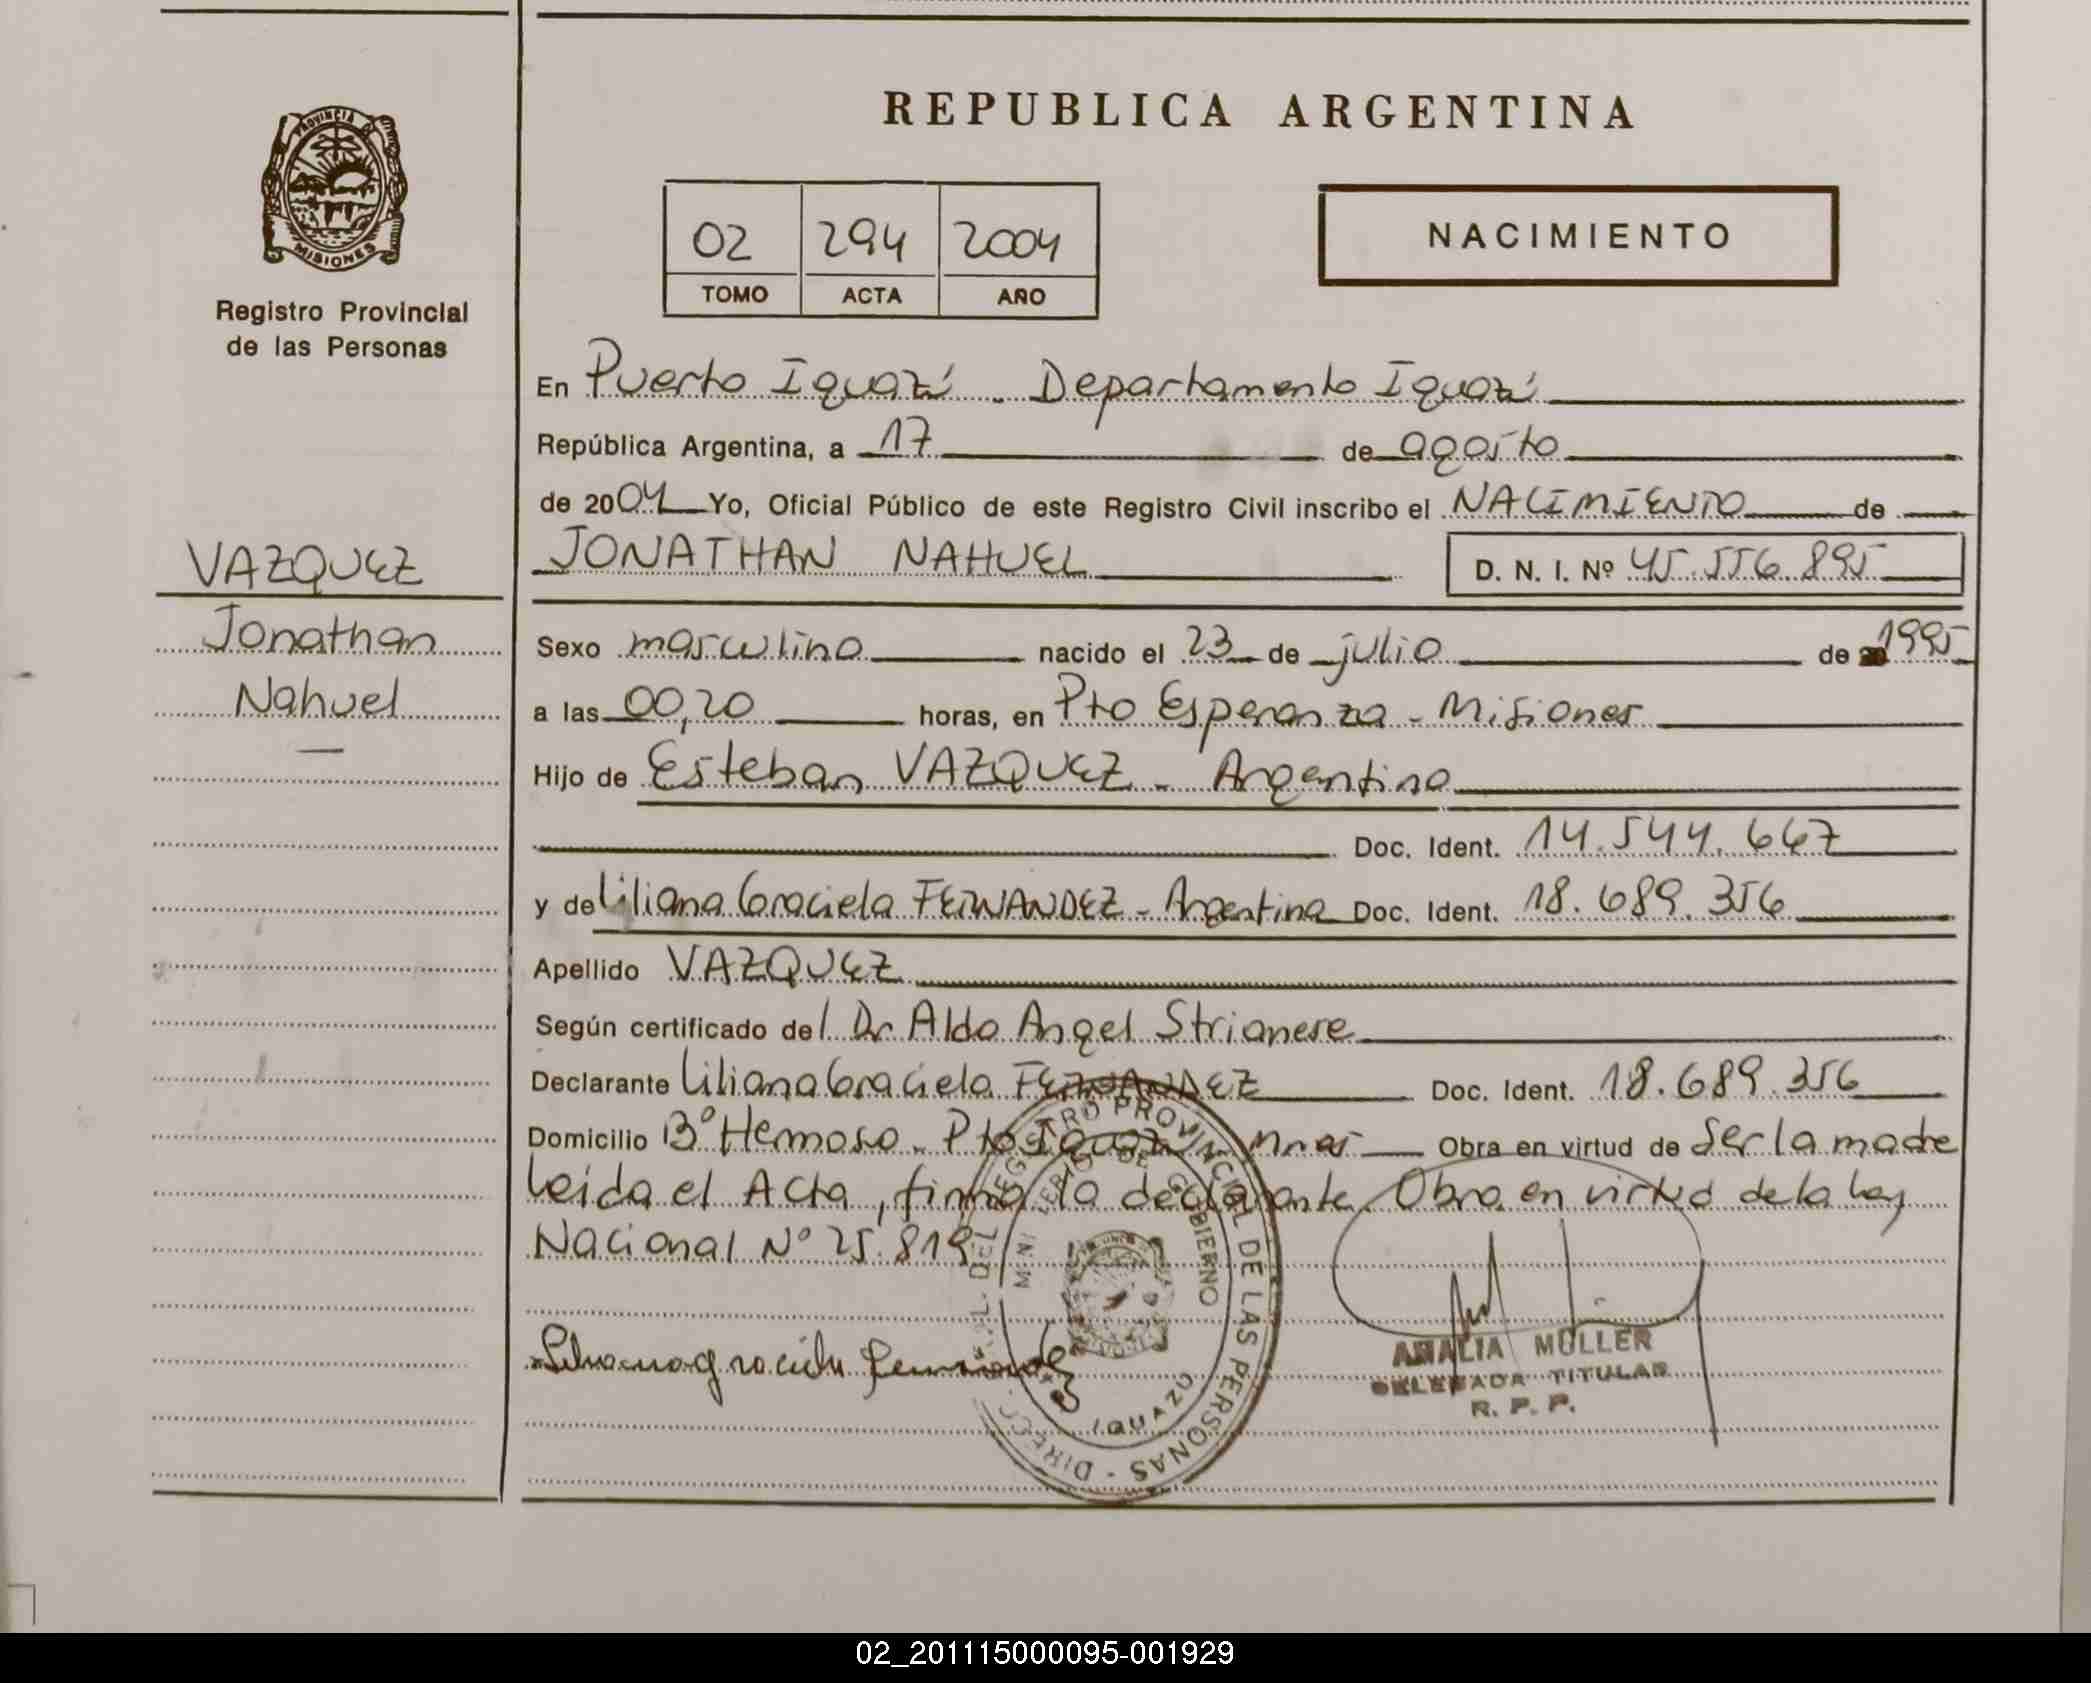 REPUBLICA ARGENTINA
PROVINCIA DE
MISIONES
Registro Provincial
de las Personas
02 294 2004
TOMO ACTA AÑO
NACIMIENTO
En Puerto Iguazú - Departamento Iguazú
República Argentina, a 17 de agosto
de 2004 Yo, Oficial Público de este Registro Civil inscribo el NACIMIENTO de
JONATHAN NAHUEL D. N. I. Nº 45.556.895
VAZQUEZ
Jonathan
Nahuel
Sexo masculino nacido el 23 de julio de 1995
a las 00,20 horas, en Pto Esperanza - Misiones
Hijo de Esteban VAZQUEZ - Argentino
Doc. Ident. 14.544.667
y de Liliana Graciela FERNANDEZ - Argentina Doc. Ident. 18.689.356
Apellido VAZQUEZ
Según certificado del Dr Aldo Angel Strianese
Declarante Liliana Graciela FERNANDEZ Doc. Ident. 18.689.356
Domicilio Bº Hermoso - Pto Iguazú Mnes Obra en virtud de ser la madre
Leida el Acta, firma la declarante. Obra en virtud de la Ley
Nacional Nº 25.819
Liliana graciela fernandez
DEL REGISTRO PROVINCIAL DE LAS PERSONAS - DIRECC.
MINISTERIO DE GOBIERNO
IGUAZU
AMALIA MULLER
DELEGADA TITULAR
R. P. P.
02_201115000095-001929